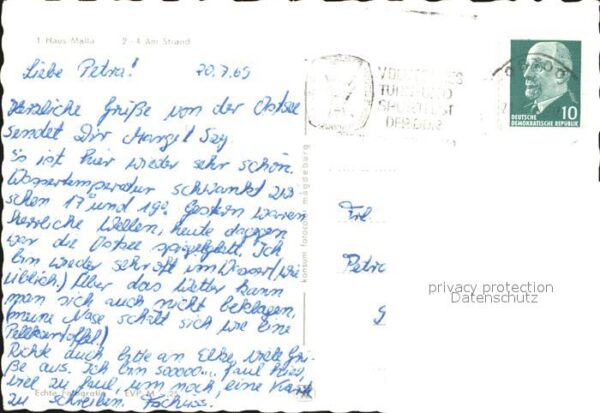 1 Haus Malta 2-4 Am Strand
Liebe Petra! 20.7.69
Herzliche Grüße von der Ostsee
sendet Dir Margit
Es ist hier wieder sehr schön.
Wassertemperatur schwankt zwi
schen 17° und 19°. Gestern waren
herrliche Wellen, heute dagegen
war die Ostsee spiegelglatt. Ich
bin wieder sehr oft im Wasser (wie
üblich.) Über das Wetter kann
man sich auch nicht beklagen.
(meine Nase schält sich wie eine
Pellkartoffel)
Richte auch bitte an Elke viele Grü-
ße aus. Ich bin sooooo... faul hier,
viel zu faul, um noch eine Karte
zu schreiben. Tschüss.
Echte Fotografie EVP M
konsum fotocolor magdeburg
TURN- UND
SPORTFEST
DER DDR
DEUTSCHE
DEMOKRATISCHE REPUBLIK
10
Frl.
Petra
G
privacy protection
Datenschutz